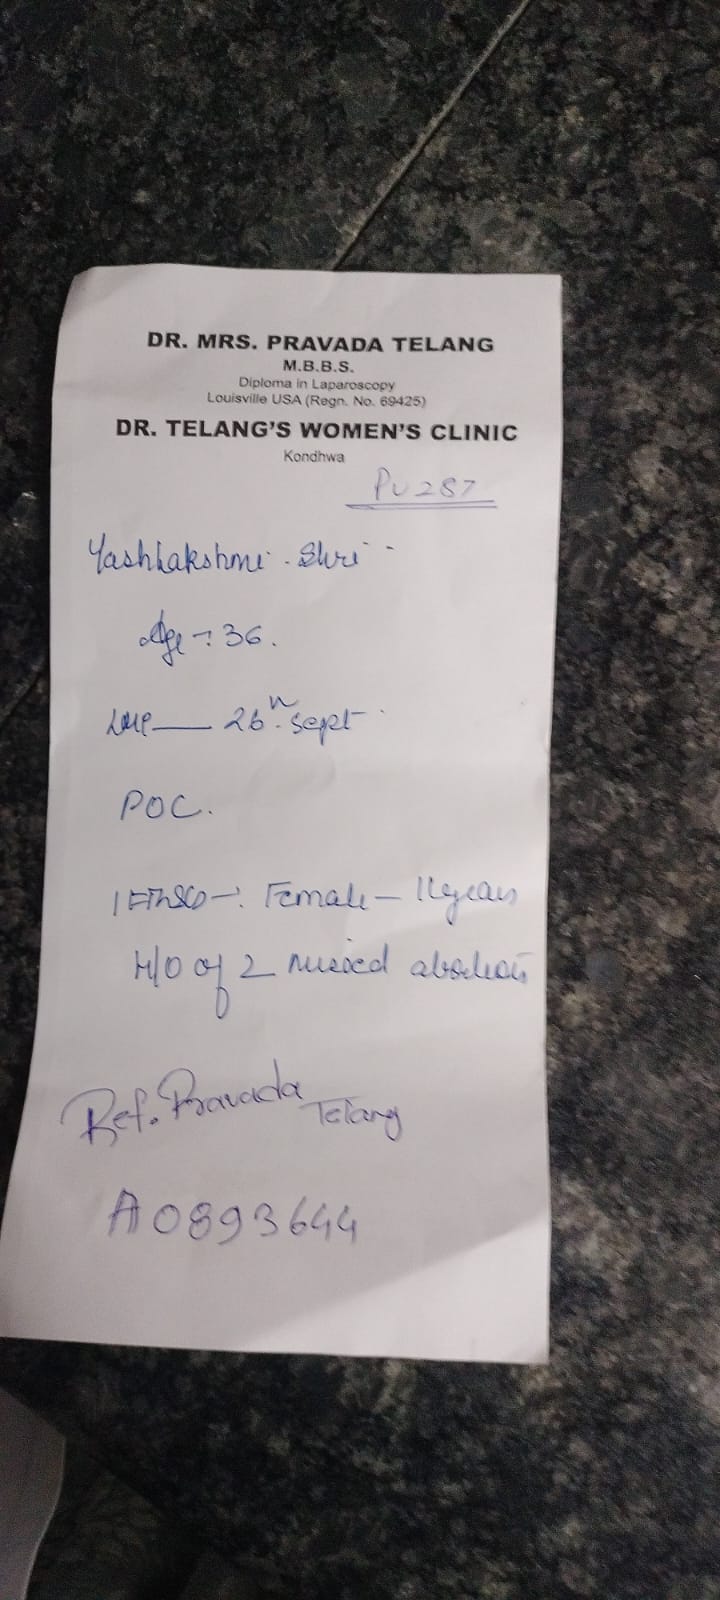 DR. MRS. PRAVADA TELANG
M.B.B.S.
Diploma in Laparoscopy
Louisville USA (Regn. No. 69425)
DR. TELANG'S WOMEN'S CLINIC
Kondhwa
PU 287
Yashlakshmi Shri
Age : 36.
LMP — 26th Sept
POC.
Female - 11 years
H/O of 2 missed abortions
Ref. Pravada
Telang
A0893644